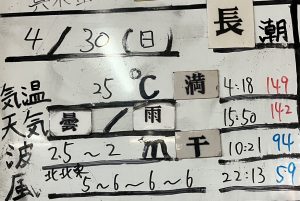 4/30(日) 長潮
気温 25℃ 満 4:18 149
天気 曇/雨 15:50 142
波 2.5〜2m 干 10:21 94
風 北北東 5〜6〜6〜6 22:13 59